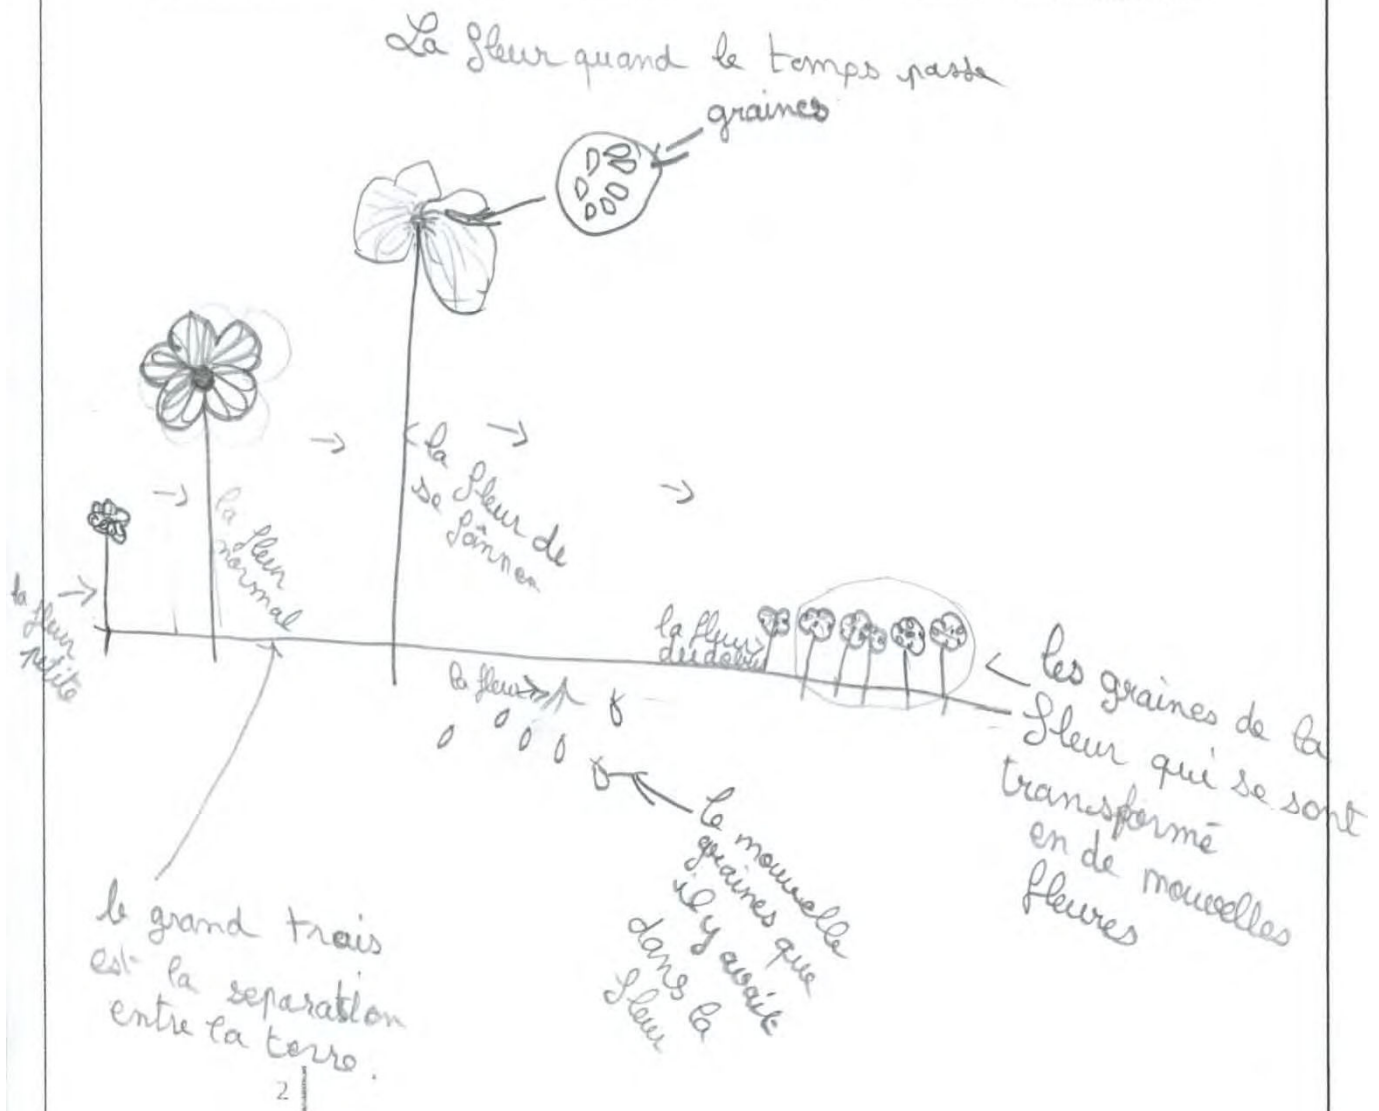 La fleur quand le temps passe
graines
la fleur
petite
la fleur
normal
la fleur de
se fânner
la fleur
la fleur
du début
les graines de la
fleur qui se sont
transformé
en de nouvelles
fleures
le nouvelle
graines que
il y avait
dans la
fleur
le grand trais
est la separation
entre la terre.
2